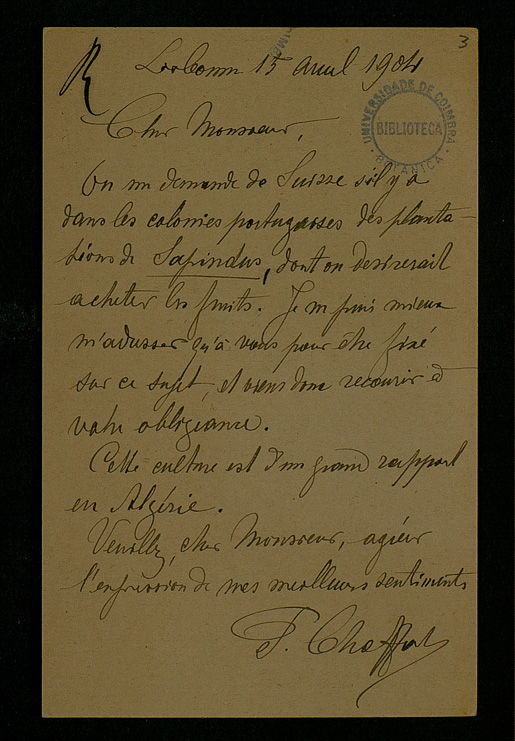 3
R
Lisbonne 15 avril 1904
UNIVERSIDADE DE COIMBRA
BIBLIOTECA
BOTANICA
Cher Monsieur,
On me demande de Suisse s'il y a
dans les colonies portugaises des planta-
tions de Sapindus, dont on desirerait
acheter les fruits. Je ne puis mieux
m'adresser qu'à vous pour être fixé
sur ce sujet, et viens donc recourir à
votre obligeance.
Cette culture est d'un grand rapport
en Algérie.
Veuillez, cher Monsieur, agréer
l'expression de mes meilleurs sentiments
P. Choffat